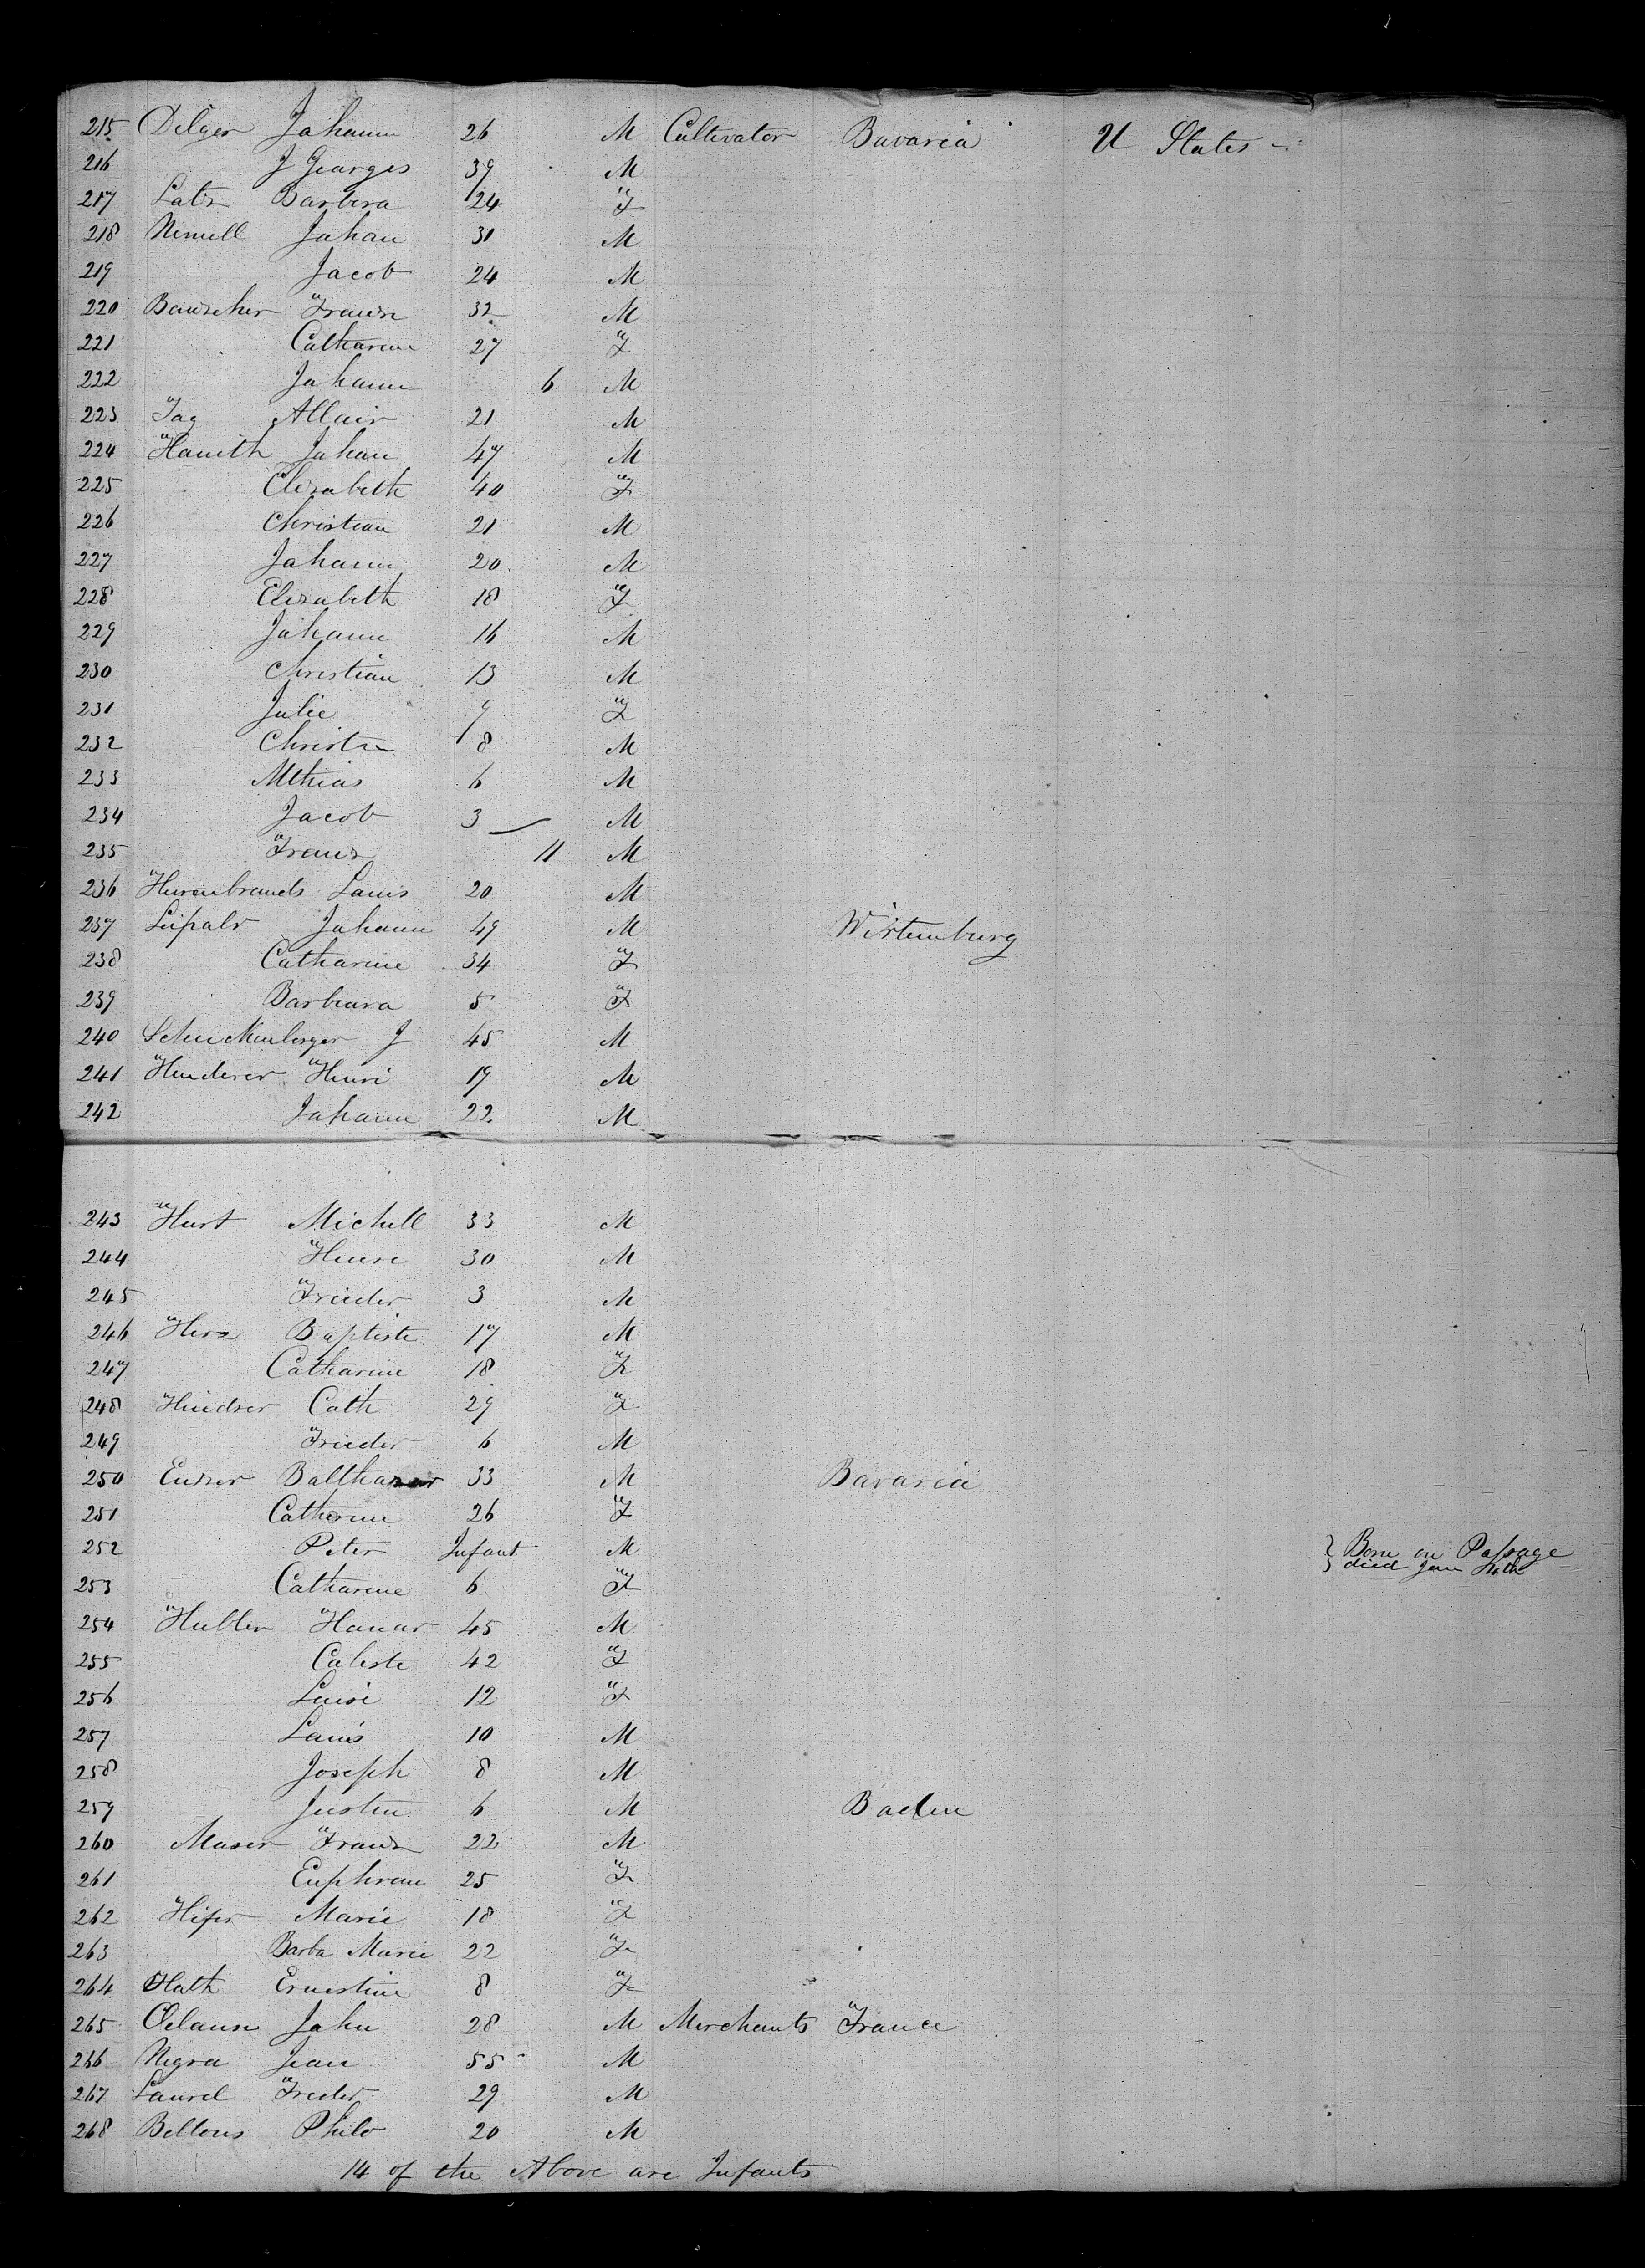 215 Dilger Johann 26 M Cultivator Bavaria U States
216 J Georges 39 M
217 Latz Barbera 24 F
218 Nemell Johan 31 M
219 Jacob 24 M
220 Bauscher Franz 32 M
221 Catharine 27 F
222 Johann 6 M
223 Fag 21 M
224 Hamith Johan 47 M
225 Elizabeth 40 F
226 Christian 21 M
227 Johann 20 M
228 Elizabeth 18 F
229 Johann 16 M
230 Christian 13 M
231 Julie 9 F
232 8 M
233 Mthias 6 M
234 Jacob 3 M
235 Franz 11 M
236 Louis 20 M
237 Johann 49 M Wirtemburg
238 Catharine 34 F
239 Barbeara 5 F
240 J 45 M
241 Henderer Henri 19 M
242 Johann 22 M
243 Hurt Michell 33 M
244 30 M
245 Frieder 3 M
246 Baptiste 17 M
247 Catharine 18 F
248 Cath 29 F
249 Frieder 6 M
250 Balthazar 33 M Bavaria
251 Catherine 26 F
252 Peter Infant M Born on Passage
died Jan 4th
253 Catharine 6 F
254 Hubler 45 M
255 Celeste 42 F
256 Louise 12 F
257 Louis 10 M
258 Joseph 8 M
259 Justin 6 M Baden
260 Maser Franz 22 M
261 25 F
262 Marie 18 F
263 Barba Marie 22 F
264 Hath Ernestine 8 F
265 John 28 M Merchants France
266 Negra Jean 55 M
267 Laurel Freder 29 M
268 Bellons Philo 20 M
14 of the Above are Infants